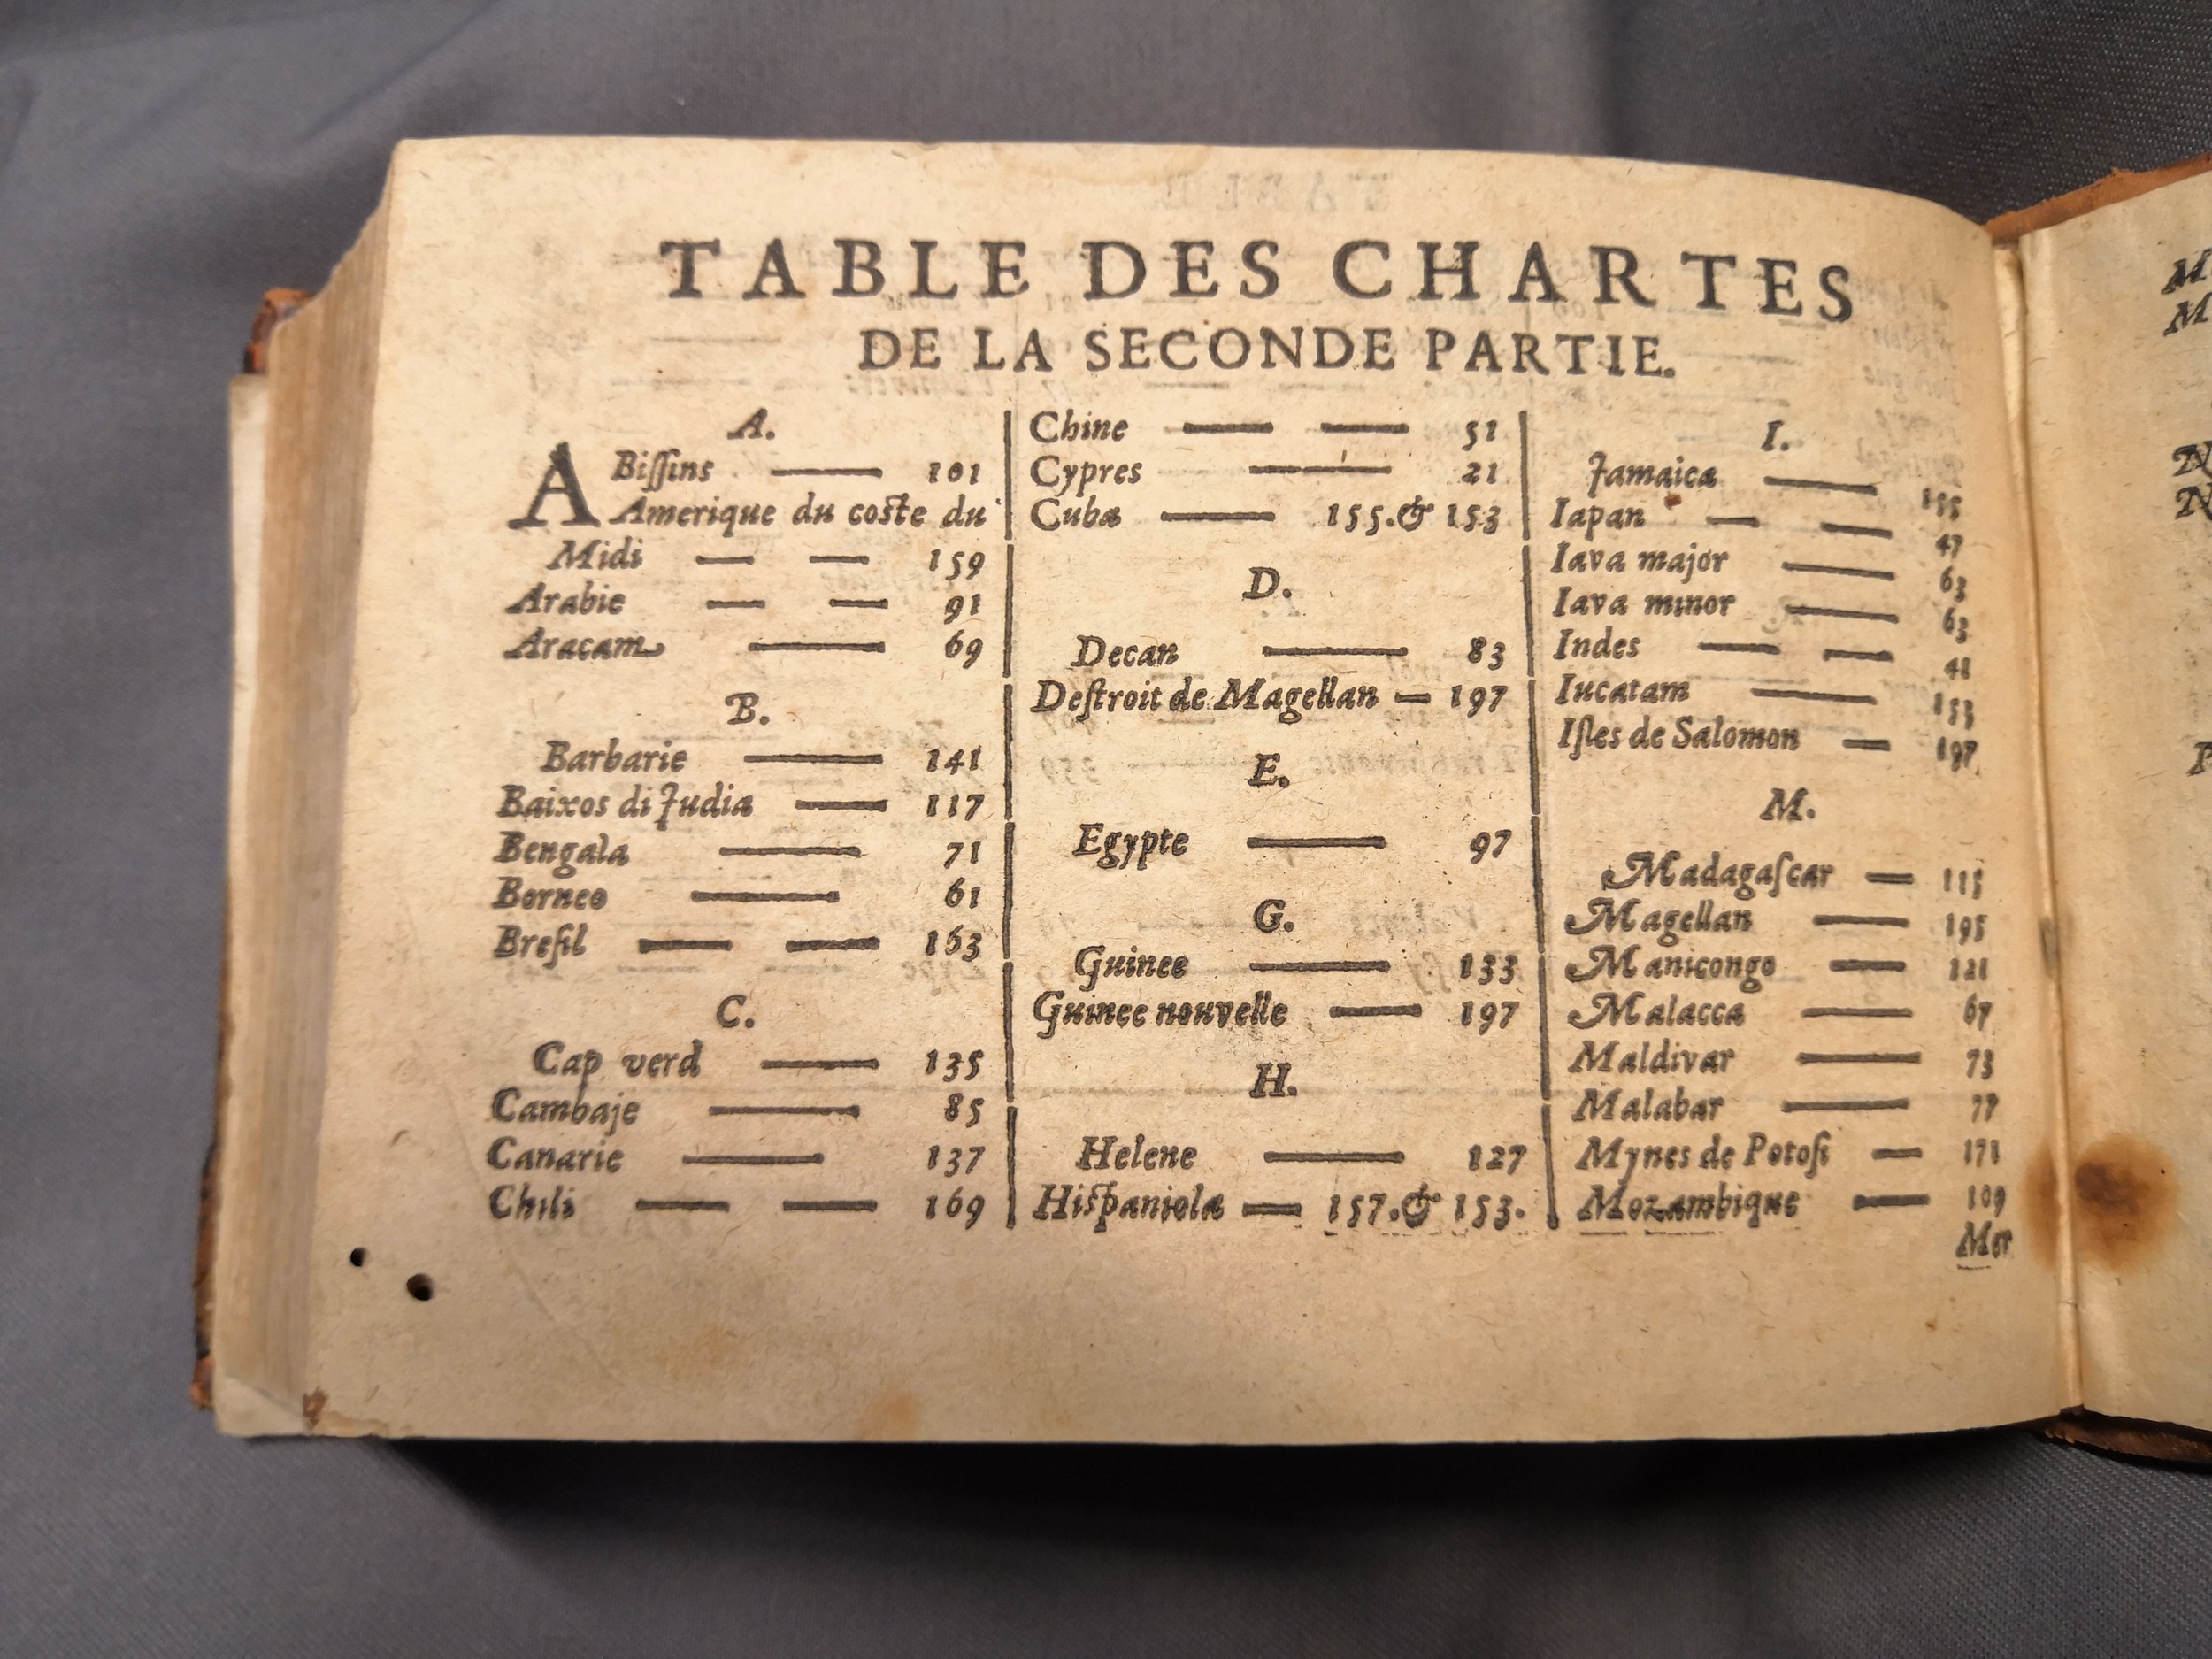 TABLE DES CHARTES
DE LA SECONDE PARTIE.
A.
ABiſſins 101
Amerique du coſte du
Midi 159
Arabie 91
Aracam 69
B.
Barbarie 141
Baixos di Judia 117
Bengala 71
Borneo 61
Breſil 163
C.
Cap verd 135
Cambaje 85
Canarie 137
Chili 169
Chine 51
Cypres 21
Cuba 155.& 153
D.
Decan 83
Deſtroit de Magellan 197
E.
Egypte 97
G.
Guinee 133
Guinee nouvelle 197
H.
Helene 127
Hiſpaniola 157.& 153.
I.
Jamaica 155
Iapan 47
Iava major 63
Iava minor 63
Indes
Iucatam 153
Iſles de Salomon 197
M.
Madagaſcar 115
Magellan 195
Manicongo 121
Malacca 67
Maldivar 73
Malabar 77
Mynes de Potoſi 171
Mozambique 109
Mor